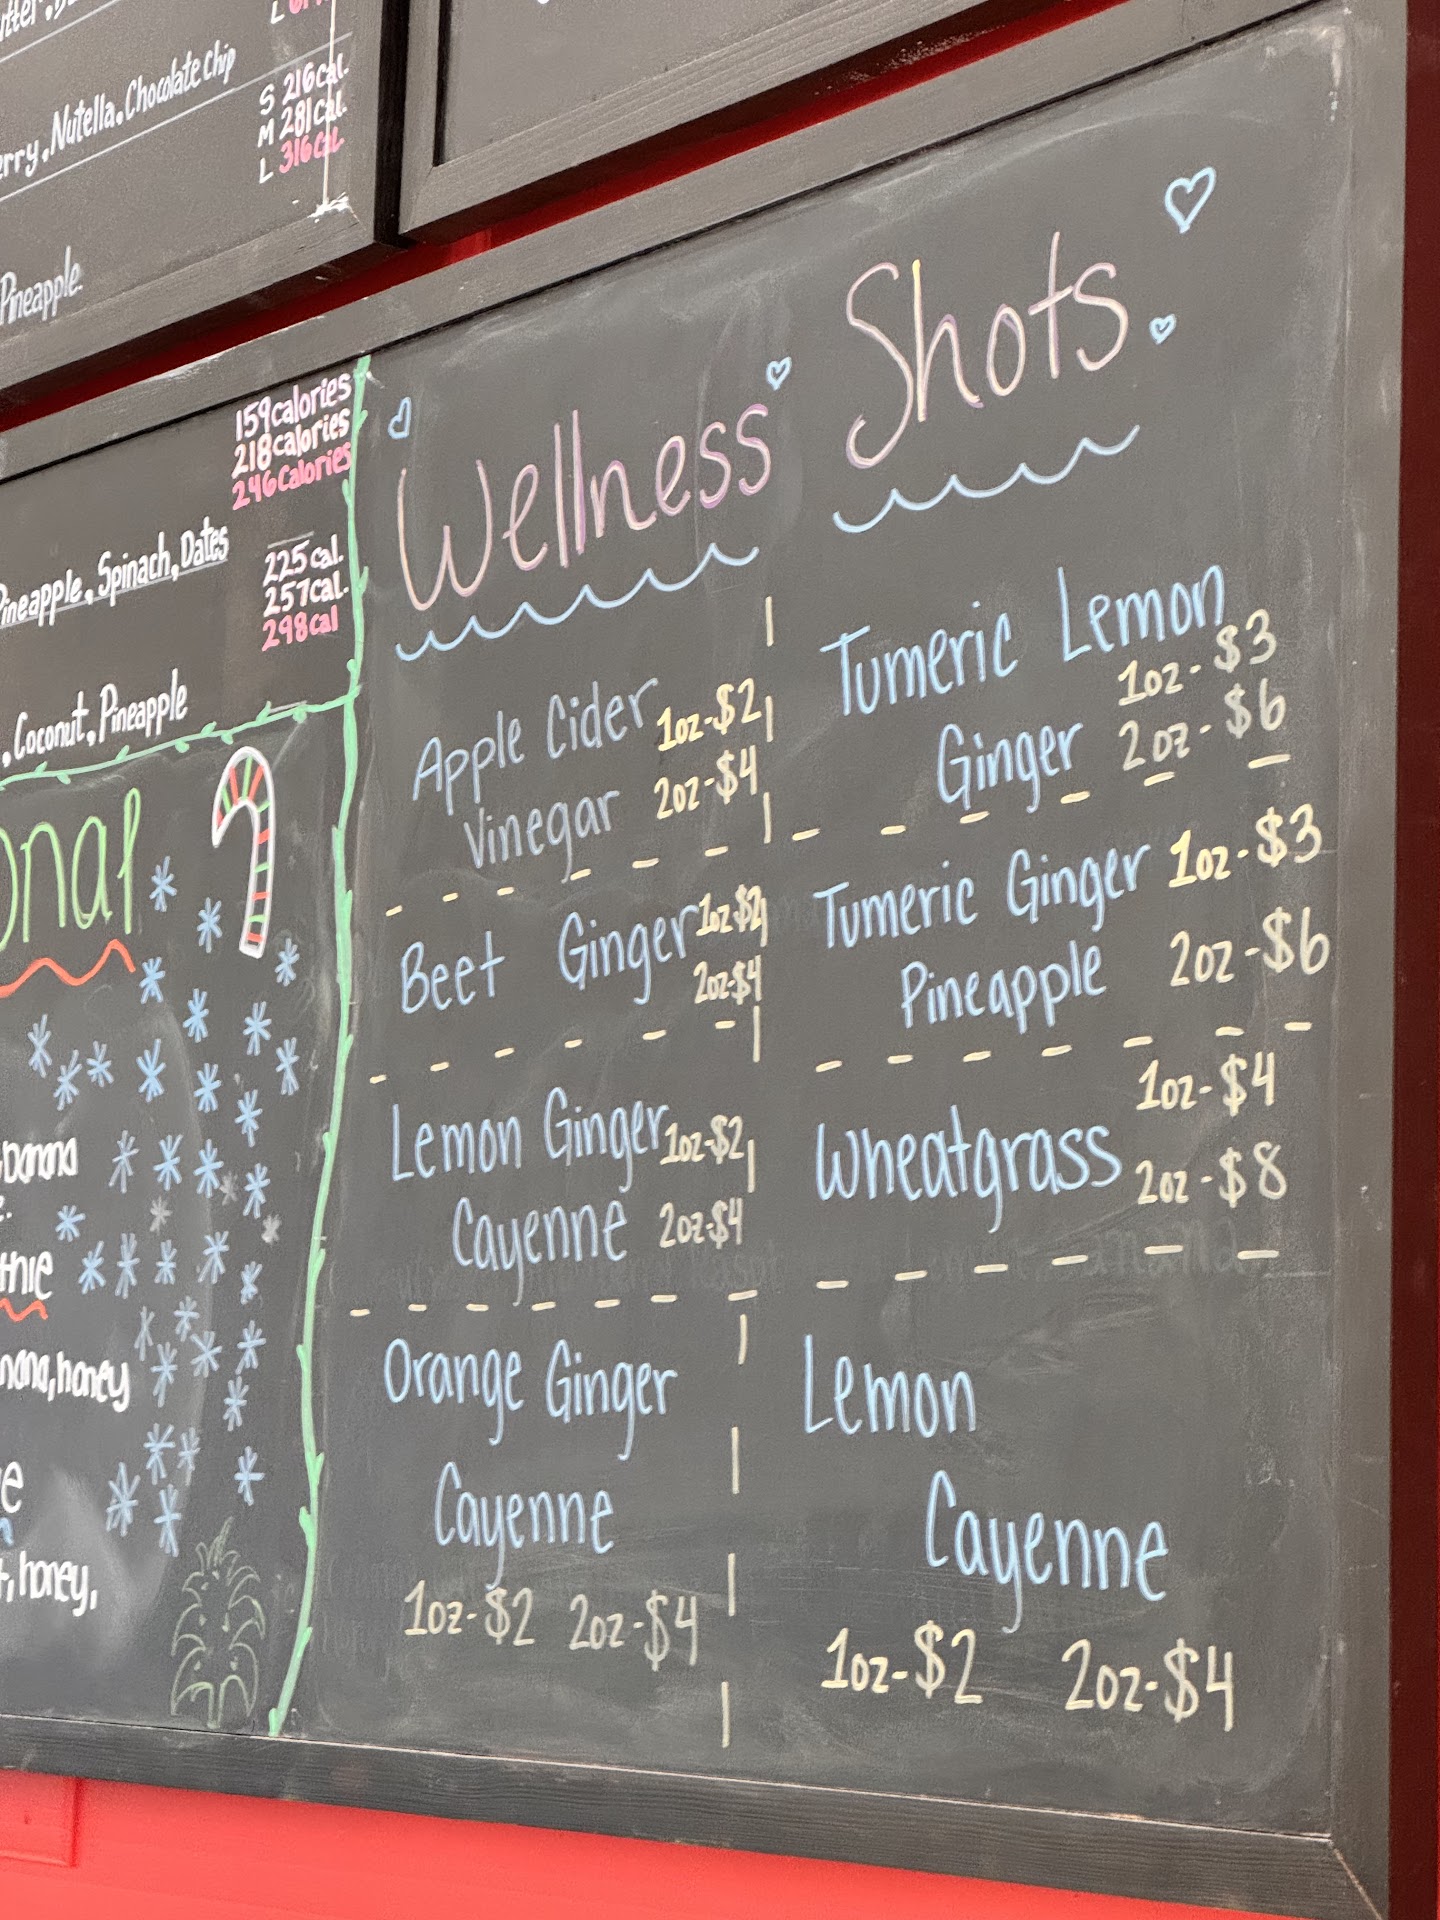 L
Nutella, Chocolate Chip
S 216cal.
M 281cal.
L 316cal
Pineapple.
159calories
218calories
246calories
Pineapple, Spinach, Dates
225cal.
257cal.
298cal
, Coconut, Pineapple
honey
honey,
Wellness Shots
Apple Cider 1oz-$2
Vinegar 2oz-$4
Beet Ginger 1oz-$2
2oz-$4
Lemon Ginger 1oz-$2
Cayenne 2oz-$4
Orange Ginger
Cayenne
1oz-$2 2oz-$4
Tumeric Lemon
1oz-$3
Ginger 2oz-$6
Tumeric Ginger 1oz-$3
Pineapple 2oz-$6
1oz-$4
Wheatgrass 2oz-$8
Lemon
Cayenne
1oz-$2 2oz-$4